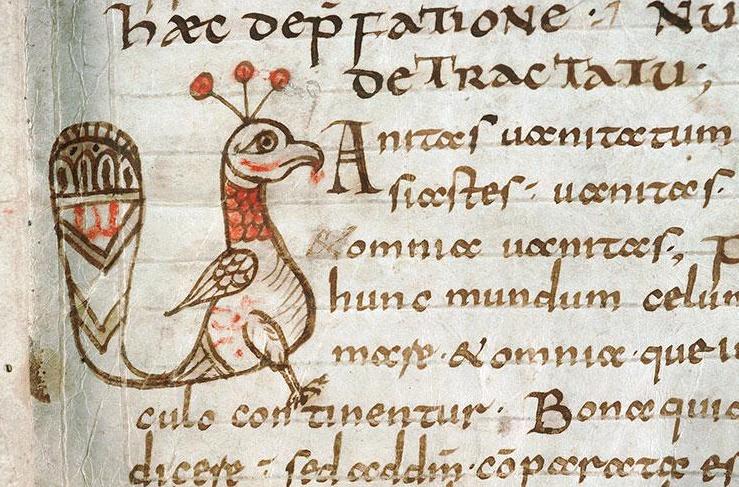 hæc dep̄fatione · Nu
detractatu;
Anitas uanitatum
siastes · uanitas ·
& omnia uanitas; P
hunc mundum celum
mare · & omnia · que
culo continentur · Bona quid
dicere · sed ad dm̄ · cōparata es